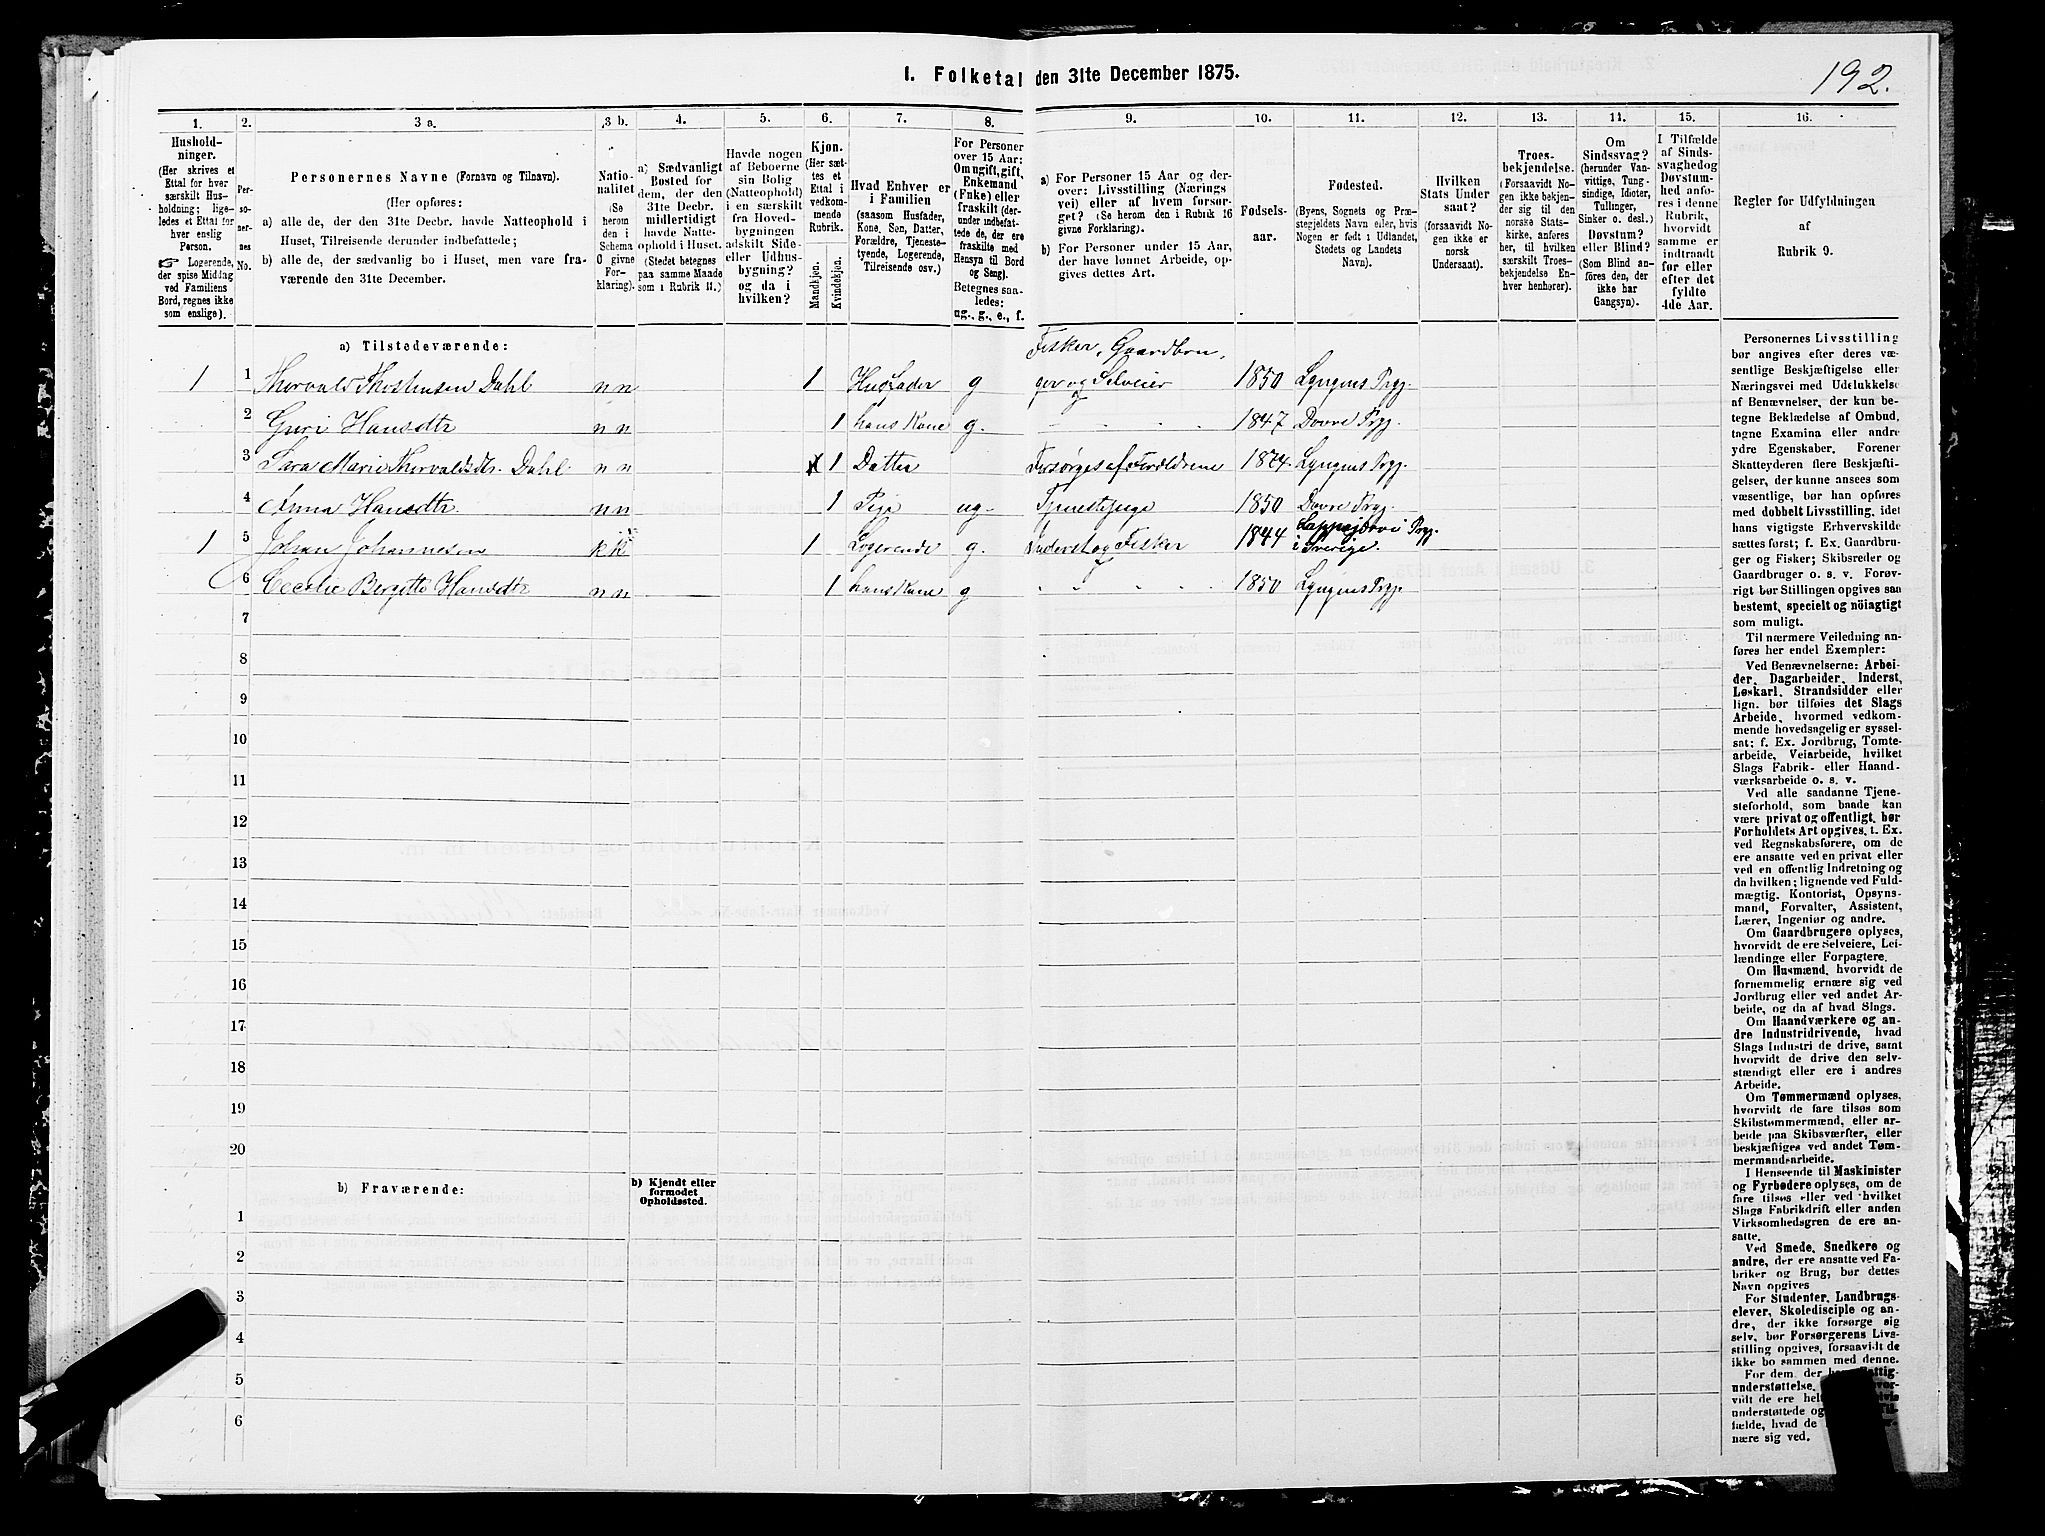 I. Folketal den 31te December 1875.
192.
1.
2.
3 a.
3 b.
4.
5.
6.
7.
8.
9.
10.
11.
12.
13.
14.
15.
16.
Hushold-
ninger.
(Her skrives et
Ettal for hver
særskilt Hus-
holdning; lige-
ledes et Ettal for
hver enslig
Person.
☞ Logerende,
der spise Middag
ved Familiens
Bord, regnes ikke
som enslige).
Per-
so-
ner-
nes
No.
Personernes Navne (Fornavn og Tilnavn).
(Her opføres:
a) alle de, der den 31te Decbr. havde Natteophold i
Huset, Tilreisende derunder indbefattede;
b) alle de, der sædvanlig bo i Huset, men vare fra-
værende den 31te December.
Natio-
nalitet
(Se
herom
den i
Schema
O givne
For-
klaring).
a) Sædvanligt
Bosted for
dem, der den
31te Decbr.
midlertidigt
havde Natte-
ophold i Huset.
(Stedet betegnes
paa samme Maade
som i Rubrik 11.)
Havde nogen
af Beboerne
sin Bolig
(Natteophold)
i en særskilt
fra Hoved-
bygningen
adskilt Side-
eller Udhus-
bygning?
og da i
hvilken?
Kjøn.
(Her sæt-
tes et
Ettal i
vedkom-
mende
Rubrik.
Mandkjøn.
Kvindekjøn.
Hvad Enhver er
i Familien
(saasom Husfader,
Kone, Søn, Datter,
Forældre, Tjeneste-
tyende, Logerende,
Tilreisende osv.)
For Personer
over 15 Aar:
Om ugift, gift,
Enkemand
(Enke) eller
fraskilt (der-
under indbefat-
tede de, der ere
fraskilte med
Hensyn til Bord
og Seng).
Betegnes saa-
ledes:
ug., g., e., f.
a) For Personer 15 Aar og der-
over: Livsstilling (Nærings
vei) eller af hvem forsør-
get? (Se herom den i Rubrik 16
givne Forklaring).
b) For Personer under 15 Aar,
der have lønnet Arbeide, op-
gives dettes Art.
Fødsels-
aar.
Fødested.
(Byens, Sognets og Præ-
stegjeldets Navn eller, hvis
Nogen er født i Udlandet,
Stedets og Landets
Navn).
Hvilken
Stats Under
saat?
(forsaavidt No-
gen ikke er
norsk
Undersaat).
Troes-
bekjendelse.
(Forsaavidt No-
gen ikke bekjen-
der sig til den
norske Stats-
kirke, anføres
her, til hvilken
særskilt Troes-
bekjendelse En-
hver henhører).
Om
Sindssvag?
(herunder Van-
vittige, Tung-
sindige, Idioter,
Tullinger,
Sinker o. desl.)
Døvstum?
eller Blind?
(Som Blind an-
føres den, der
ikke har
Gangsyn).
I Tilfælde
af Sinds-
svaghed og
Døvstum-
hed anfø-
res i denne
Rubrik,
hvorvidt
samme er
indtraadt
før eller
efter det
fyldte
4de Aar.
Regler for Udfyldningen
af
Rubrik 9.
a) Tilstedeværende:
Fisker, Gaardbru,
1 1 Thorvald Thostensen Dahl n n 1 Husfader g ger og Selveier 1850 Lyngens Prgj.
2 Guri Hansdtr n n 1 hans Kone g. 1847 Dovre Prgj.
3 Sara Marie Thorvaldsdtr. Dahl n n 1 Datter Forsørges af Forældrene 1874 Lyngens Prgj.
4 Anna Hansdtr n n 1 Pige ug Tjenestepige 1850 Dovre Prgj.
1 5 Johan Johannesen k k 1 Logerende g. Inderst og Fisker 1844 Lappajervi Prgj. i Sverige.
6 Cecelie Bergitte Hansdtr n n 1 hans Kone g 1850 Lyngens Prgj.
7
8
9
10
11
12
13
14
15
16
17
18
19
20
b) Fraværende:
b) Kjendt eller
formodet
Opholdssted.
1
2
3
4
5
6
Personernes Livsstilling
bør angives efter deres væ-
sentlige Beskjæftigelse eller
Næringsvei med Udelukkelse
af Benævnelser, der kun be-
tegne Beklædelse af Ombud,
tagne Examina eller andre
ydre Egenskaber. Forener
Skatteyderen flere Beskjæfti-
gelser, der kunne ansees som
væsentlige, bør han opføres
med dobbelt Livsstilling, idet
hans vigtigste Erhvervskilde
sættes først; f. Ex. Gaardbru-
ger og Fisker; Skibsreder og
Gaardbruger o. s. v. Forøv-
rigt bør Stillingen opgives saa
bestemt, specielt og nöiagtigt
som muligt.
Til nærmere Veiledning an-
føres her endel Exempler:
Ved Benævnelserne: Arbei-
der, Dagarbeider, Inderst,
Løskarl, Strandsidder eller
lign. bør tilføies det Slags
Arbeide, hvormed vedkom-
mende hovedsagelig er syssel-
sat; f. Ex. Jordbrug, Tomte-
arbeide, Veiarbeide, hvilket
Slags Fabrik- eller Haand-
værksarbeide o. s. v.
Ved alle saadanne Tjene-
steforhold, som baade kan
være privat og offentligt, bør
Forholdets Art opgives, t. Ex.
ved Regnskabsførere, om de
ere ansatte ved en privat eller
ved en offentlig Indretning og
da hvilken; lignende ved Fuld-
mægtig, Kontorist, Opsyns-
mand, Forvalter, Assistent,
Lærer, Ingeniør og andre.
Om Gaardbrugere oplyses,
hvorvidt de ere Selveiere, Lei-
lændinge eller Forpagtere.
Om Husmænd, hvorvidt de
fornemmelig ernære sig ved
Jordbrug eller ved andet Ar-
beide, og da af hvad Slags.
Om Haandværkere og an-
dre Industridrivende, hvad
Slags Industri de drive, samt
hvorvidt de drive den selv-
stændigt eller ere i andres
Arbeide.
Om Tømmermænd oplyses,
hvorvidt de fare tilsøs som
Skibstømmermænd, eller ar-
beide paa Skibsværfter, eller
beskjæftiges ved andet Tøm-
mermandsarbeide.
I Henseende til Maskinister
og Fyrbødere oplyses, om de
fare tilsøs eller ved hvilket
Slags Fabrikdrift eller anden
Virksomhedsgren de ere an-
satte.
Ved Smede, Snedkere og
andre, der ere ansatte ved Fa-
briker og Brug, bør dettes
Navn opgives
For Studenter, Landbrugs-
elever, Skoledisciple og an-
dre, der ikke forsørge sig
selv, bør Forsørgerens Livs-
stilling opgives, forsaavidt de
ikke bo sammen med denne.
For dem, der
understøttelse,
vidt de ere
understøttede og
fælde, hvad de
nære sig ved.